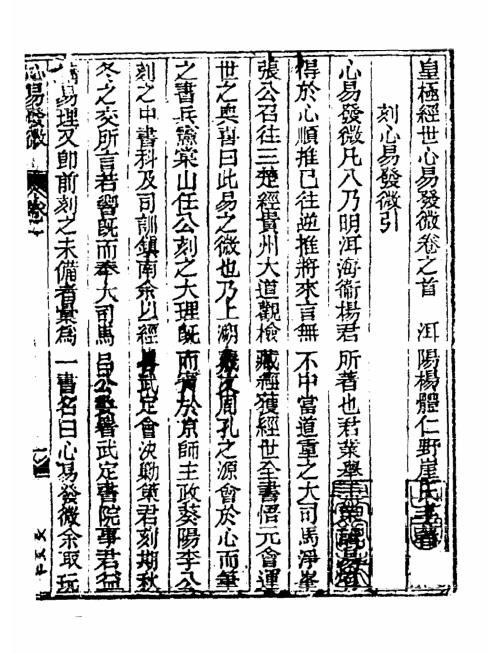 皇極經世心易發微卷之首 洱陽楊體仁野崖
刻心易發微引
心易發微凡八乃明洱海衞楊君所著也君業舉
得於心順推已往逆推將來言無不中當道重之大司馬淨峯
張公召往三楚經貴州大道觀檢藏經獲經世全書悟元會運
世之奧喜曰此易之微也乃上溯羲文周孔之源會於心而筆
之書兵憲棠山任公刻之大理旣而賷於京師主政葵陽李公
刻之中書科及司訓鎮南余以經武定會決勦策君刻期秋
冬之交所言若響旣而奉大司馬呂公檄署武定書院事君益
易理又卽前刻之未備者彙爲一書名曰心易發微余取玩
心易發微